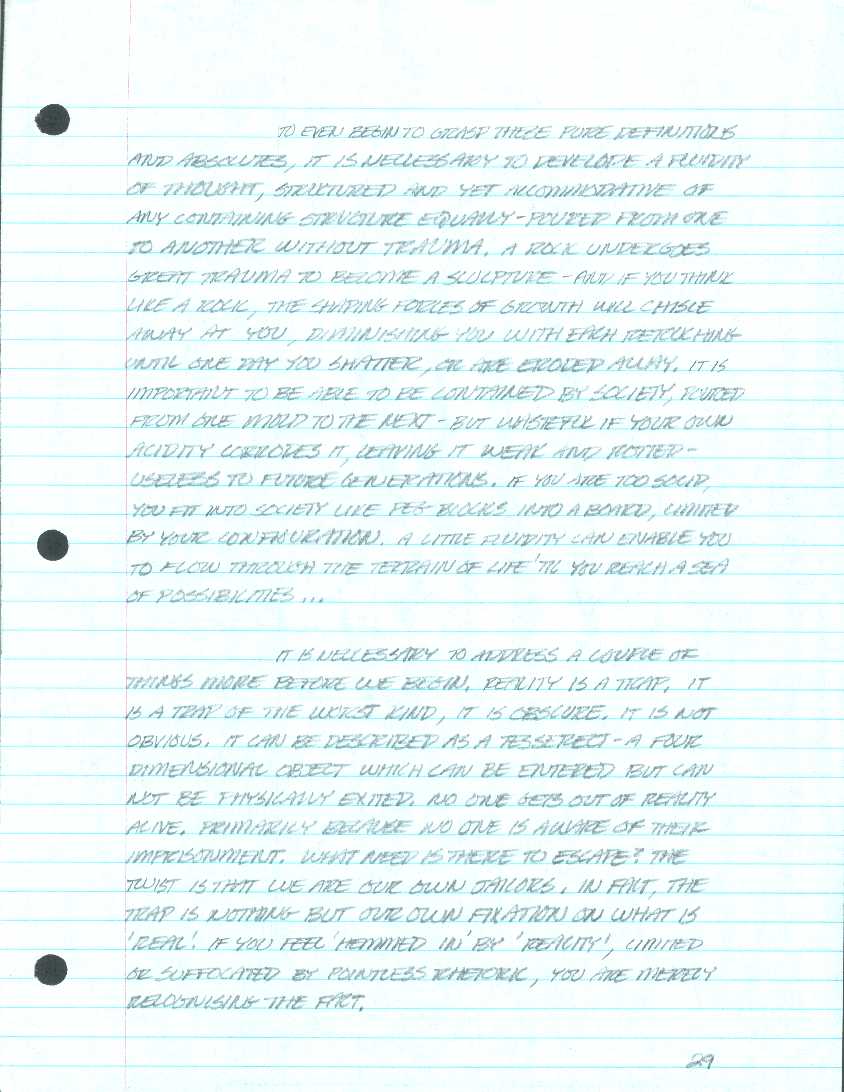 TO EVEN BEGIN TO GRASP THESE PURE DEFINITIONS
AND ABSOLUTES, IT IS NECCESSARY TO DEVELOPE A FLUIDITY
OF THOUGHT, STRUCTURED AND YET ACCOMMODATIVE OF
ANY CONTAINING STRUCTURE EQUALLY - POURED FROM ONE
TO ANOTHER WITHOUT TRAUMA. A ROCK UNDERGOES
GREAT TRAUMA TO BECOME A SCULPTURE - AND IF YOU THINK
LIKE A ROCK, THE SHAPING FORCES OF GROWTH WILL CHISLE
AWAY AT YOU, DIMINISHING YOU WITH EACH RETOUCHING
UNTIL ONE DAY YOU SHATTER, OR ARE ERODED AWAY. IT IS
IMPORTANT TO BE ABLE TO BE CONTAINED BY SOCIETY, POURED
FROM ONE MOLD TO THE NEXT - BUT WASTEFUL IF YOUR OWN
ACIDITY CORRODES IT, LEAVING IT WEAK AND ROTTED -
USELESS TO FUTURE GENERATIONS. IF YOU ARE TOO SOLID,
YOU FIT INTO SOCIETY LIKE PEG BLOCKS INTO A BOARD, LIMITED
BY YOUR CONFIGURATION. A LITTLE FLUIDITY CAN ENABLE YOU
TO FLOW THROUGH THE TERRAIN OF LIFE 'TIL YOU REACH A SEA
OF POSSIBILITIES ...
IT IS NECCESSARY TO ADDRESS A COUPLE OF
THINGS MORE BEFORE WE BEGIN. REALITY IS A TRAP. IT
IS A TRAP OF THE WORST KIND, IT IS OBSCURE. IT IS NOT
OBVIOUS. IT CAN BE DESCRIBED AS A TESSERECT - A FOUR
DIMENSIONAL OBJECT WHICH CAN BE ENTERED BUT CAN
NOT BE PHYSICALLY EXITED. NO ONE GETS OUT OF REALITY
ALIVE. PRIMARILY BECAUSE NO ONE IS AWARE OF THEIR
IMPRISONMENT. WHAT NEED IS THERE TO ESCAPE? THE
TWIST IS THAT WE ARE OUR OWN JAILORS. IN FACT, THE
TRAP IS NOTHING BUT OUR OWN FIXATION ON WHAT IS
'REAL'. IF YOU FEEL 'HEMMED IN' BY 'REALITY', LIMITED
OR SUFFOCATED BY POINTLESS RHETORIC, YOU ARE MERELY
RECOGNISING THE FACT.
29